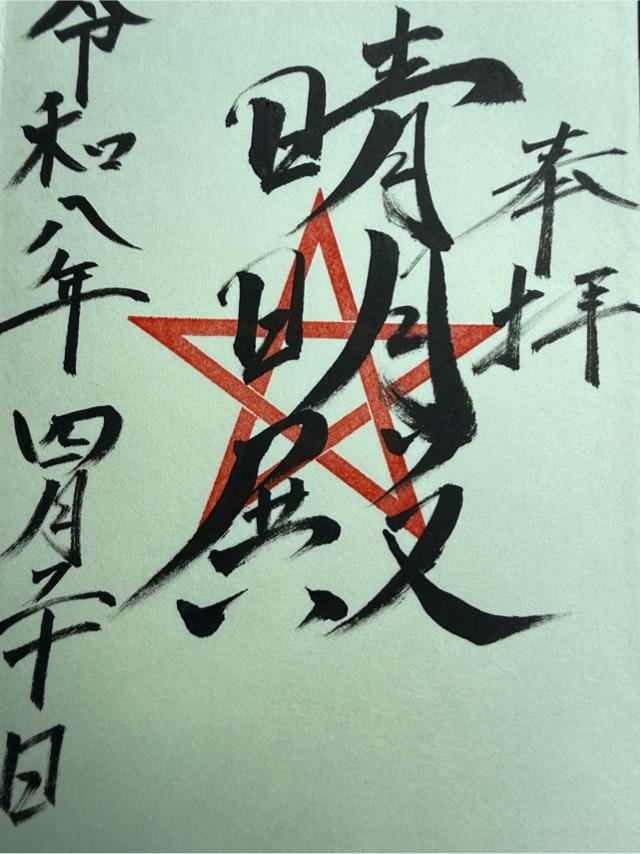 奉拝
晴明殿
令和八年四月二十日